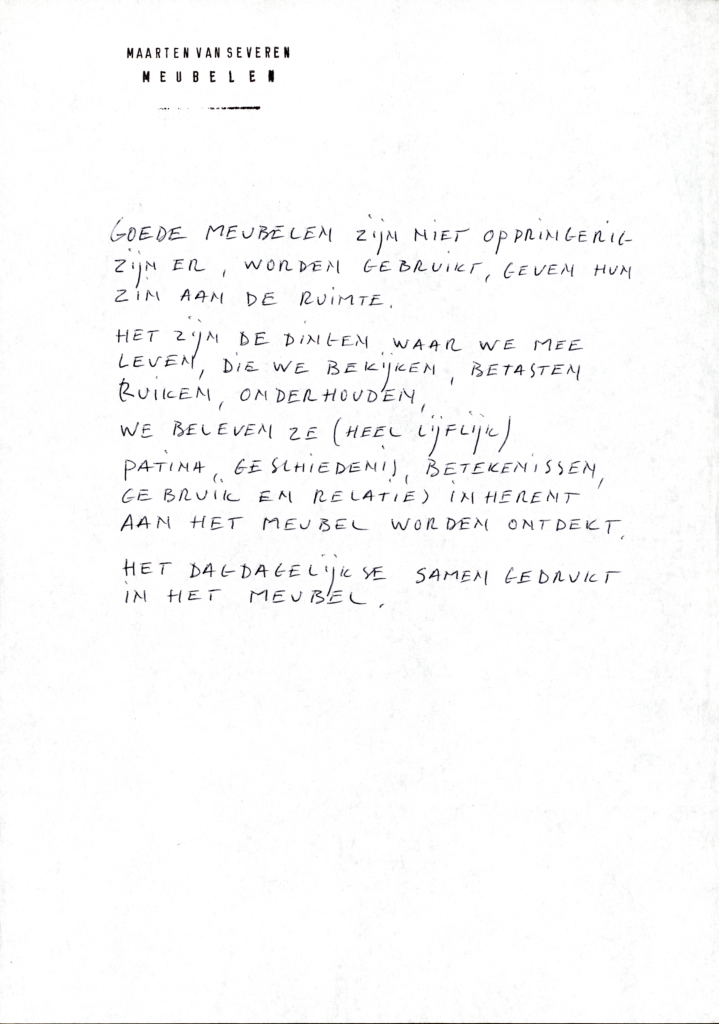 MAARTEN VAN SEVEREN
MEUBELEN
GOEDE MEUBELEN ZIJN NIET OPDRINGERIG
ZIJN ER, WORDEN GEBRUIKT, GEVEN HUN
ZIN AAN DE RUIMTE.
HET ZIJN DE DINGEN WAAR WE MEE
LEVEN, DIE WE BEKIJKEN, BETASTEN
RUIKEN, ONDERHOUDEN,
WE BELEVEN ZE (HEEL LIJFLIJK)
PATINA, GESCHIEDENIS, BETEKENISSEN,
GEBRUIK EN RELATIES INHERENT
AAN HET MEUBEL WORDEN ONTDEKT.
HET DAGDAGELIJKSE SAMEN GEDRUKT
IN HET MEUBEL.